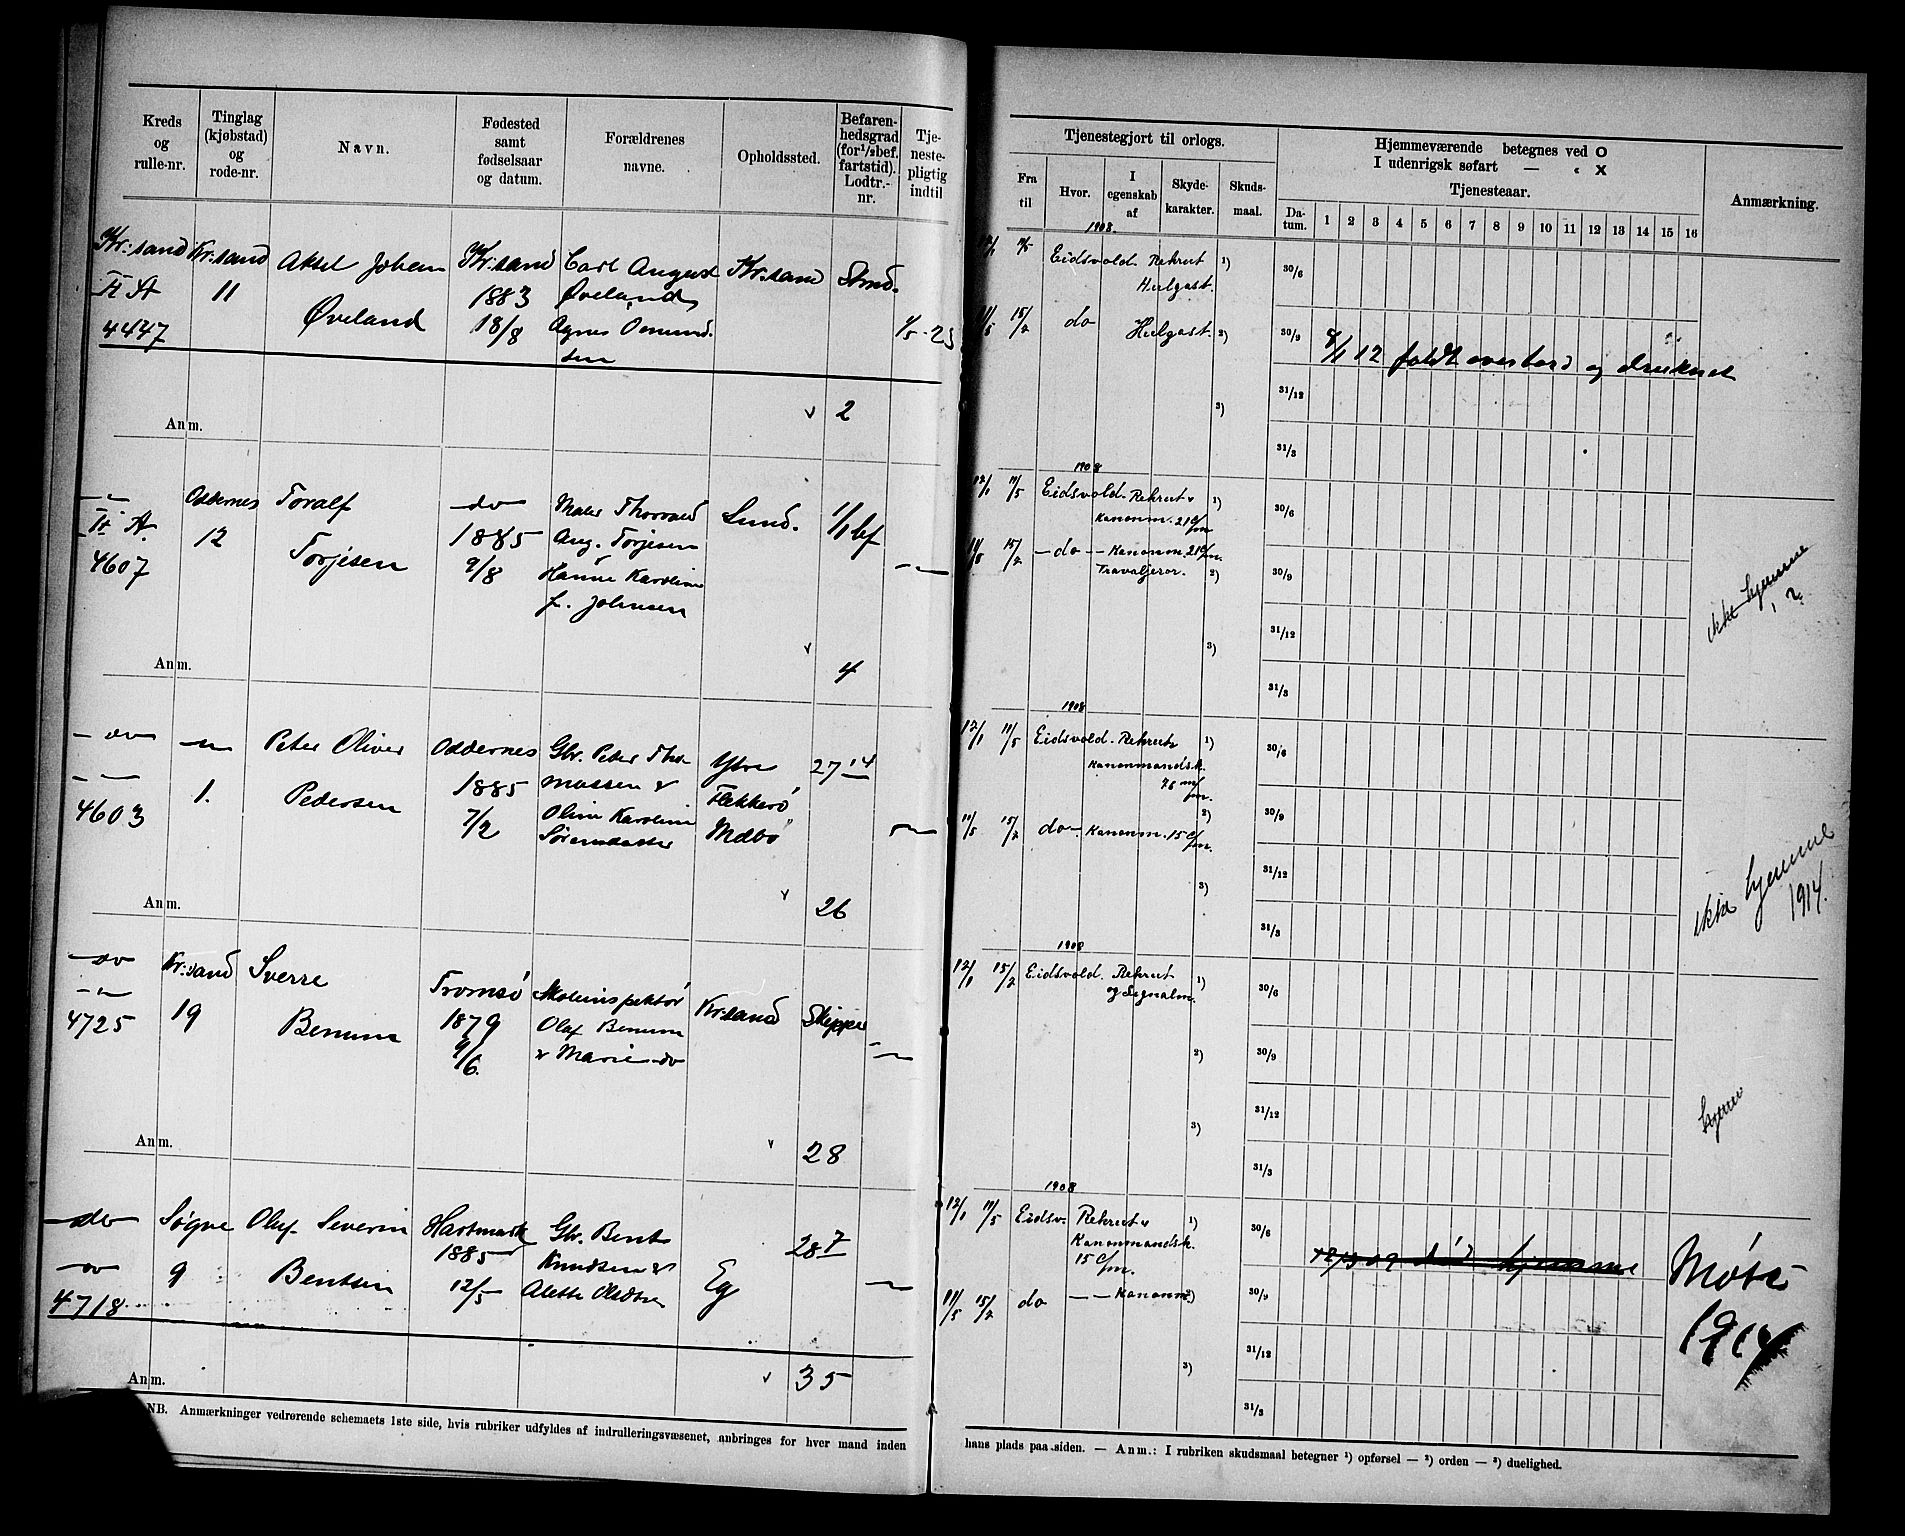 Kreds og rulle-nr.
Tinglag (kjøbstad) og rode-nr.
Navn.
Fødested samt fødselsaar og datum.
Forældrenes navne.
Opholdssted.
Befaren-hedsgrad (for 1/2 bef. fartstid). Lodtr.-nr.
Tje-neste-pligtig indtil
Kr:sand
II A
4447
Kr:sand
11
Aksel Johan
Øveland
Kr:sand
1883
18/8
Carl August
Øveland
Agnes Osmund-
sen
Kr:sand
Stmd.
1/5-23
Anm.
2
II A
4607
Oddernes
12
Toralf
Torjesen
do
1885
9/8
Maler Thorvald
Aug. Torjesen
Hanne Karoline
f. Johnsen
Lund.
1/1 bef
Anm.
4
do
4603
1.
Peter Oliver
Pedersen
Oddernes
1885
7/2
Gbr. Peder Tho-
massen &
Oline Karoline
Sørensdatter
Ytre
Flekkerø
Mæbø
27 14
Anm.
26
do
4725
Kr:sand
19
Sverre
Tromsø
1879
9/6.
Skoleinspektør
Olaf
& Marie do
Kr:sand
Skipper
Anm.
28
do
do
4718
Søgne
9
Olaf Severin
Bentsen
Hartmark
1885
12/5
Gbr. Bent
Knudsen &
Alette
Eg
28 7
Anm.
35
NB. Anmærkninger vedrørende schemaets 1ste side, hvis rubriker udfyldes af indrulleringsvæsenet, anbringes for hver mand inden
Tjenestegjort til orlogs.
Fra til
Hvor.
I egenskab af
Skyde-karakter.
Skuds-maal.
Hjemmeværende betegnes ved O
I udenrigsk søfart — « X
Tjenesteaar.
Da-tum. 1 2 3 4 5 6 7 8 9 10 11 12 13 14 15 16
Anmærkning.
1908.
Eidsvold. Rekrut 1)
Hulgast.
30/6
11/5 15/2 do Hulgast. 2)
30/9
8/1 12 faldt overbord og druknet
3)
31/12
31/3
1908
12/1 11/5 Eidsvold. Rekrut & 1)
Kanonm. 21 c/m
30/6
15/2 do Kanonm. 21 c/m.
Travaljeror. 2)
30/9
ikke hjemme
3)
31/12
31/3
1908
12/1 11/5 Eidsvold. Rekrut & 1)
Kanonmandsk.
76 m/m.
30/6
11/5 15/2 do Kanonm. 15 c/m. 2)
30/9
3)
31/12
ikke hjemme
1914.
31/3
1908
12/1 15/2 Eidsvold. Rekrut 1)
og Signalm.
30/6
2)
30/9
3)
31/12
hjemme
31/3
1908
12/1 11/5 Eidsv. Rekrut & 1)
Kanonmandsk.
15 c/m.
30/6
hjemme
Møte
1914
11/5 15/2 do — — Kanonm. 2)
30/9
3)
31/12
31/3
hans plads paa siden. — Anm.: I rubriken skudsmaal betegner 1) opførsel — 2) orden — 3) duelighed.